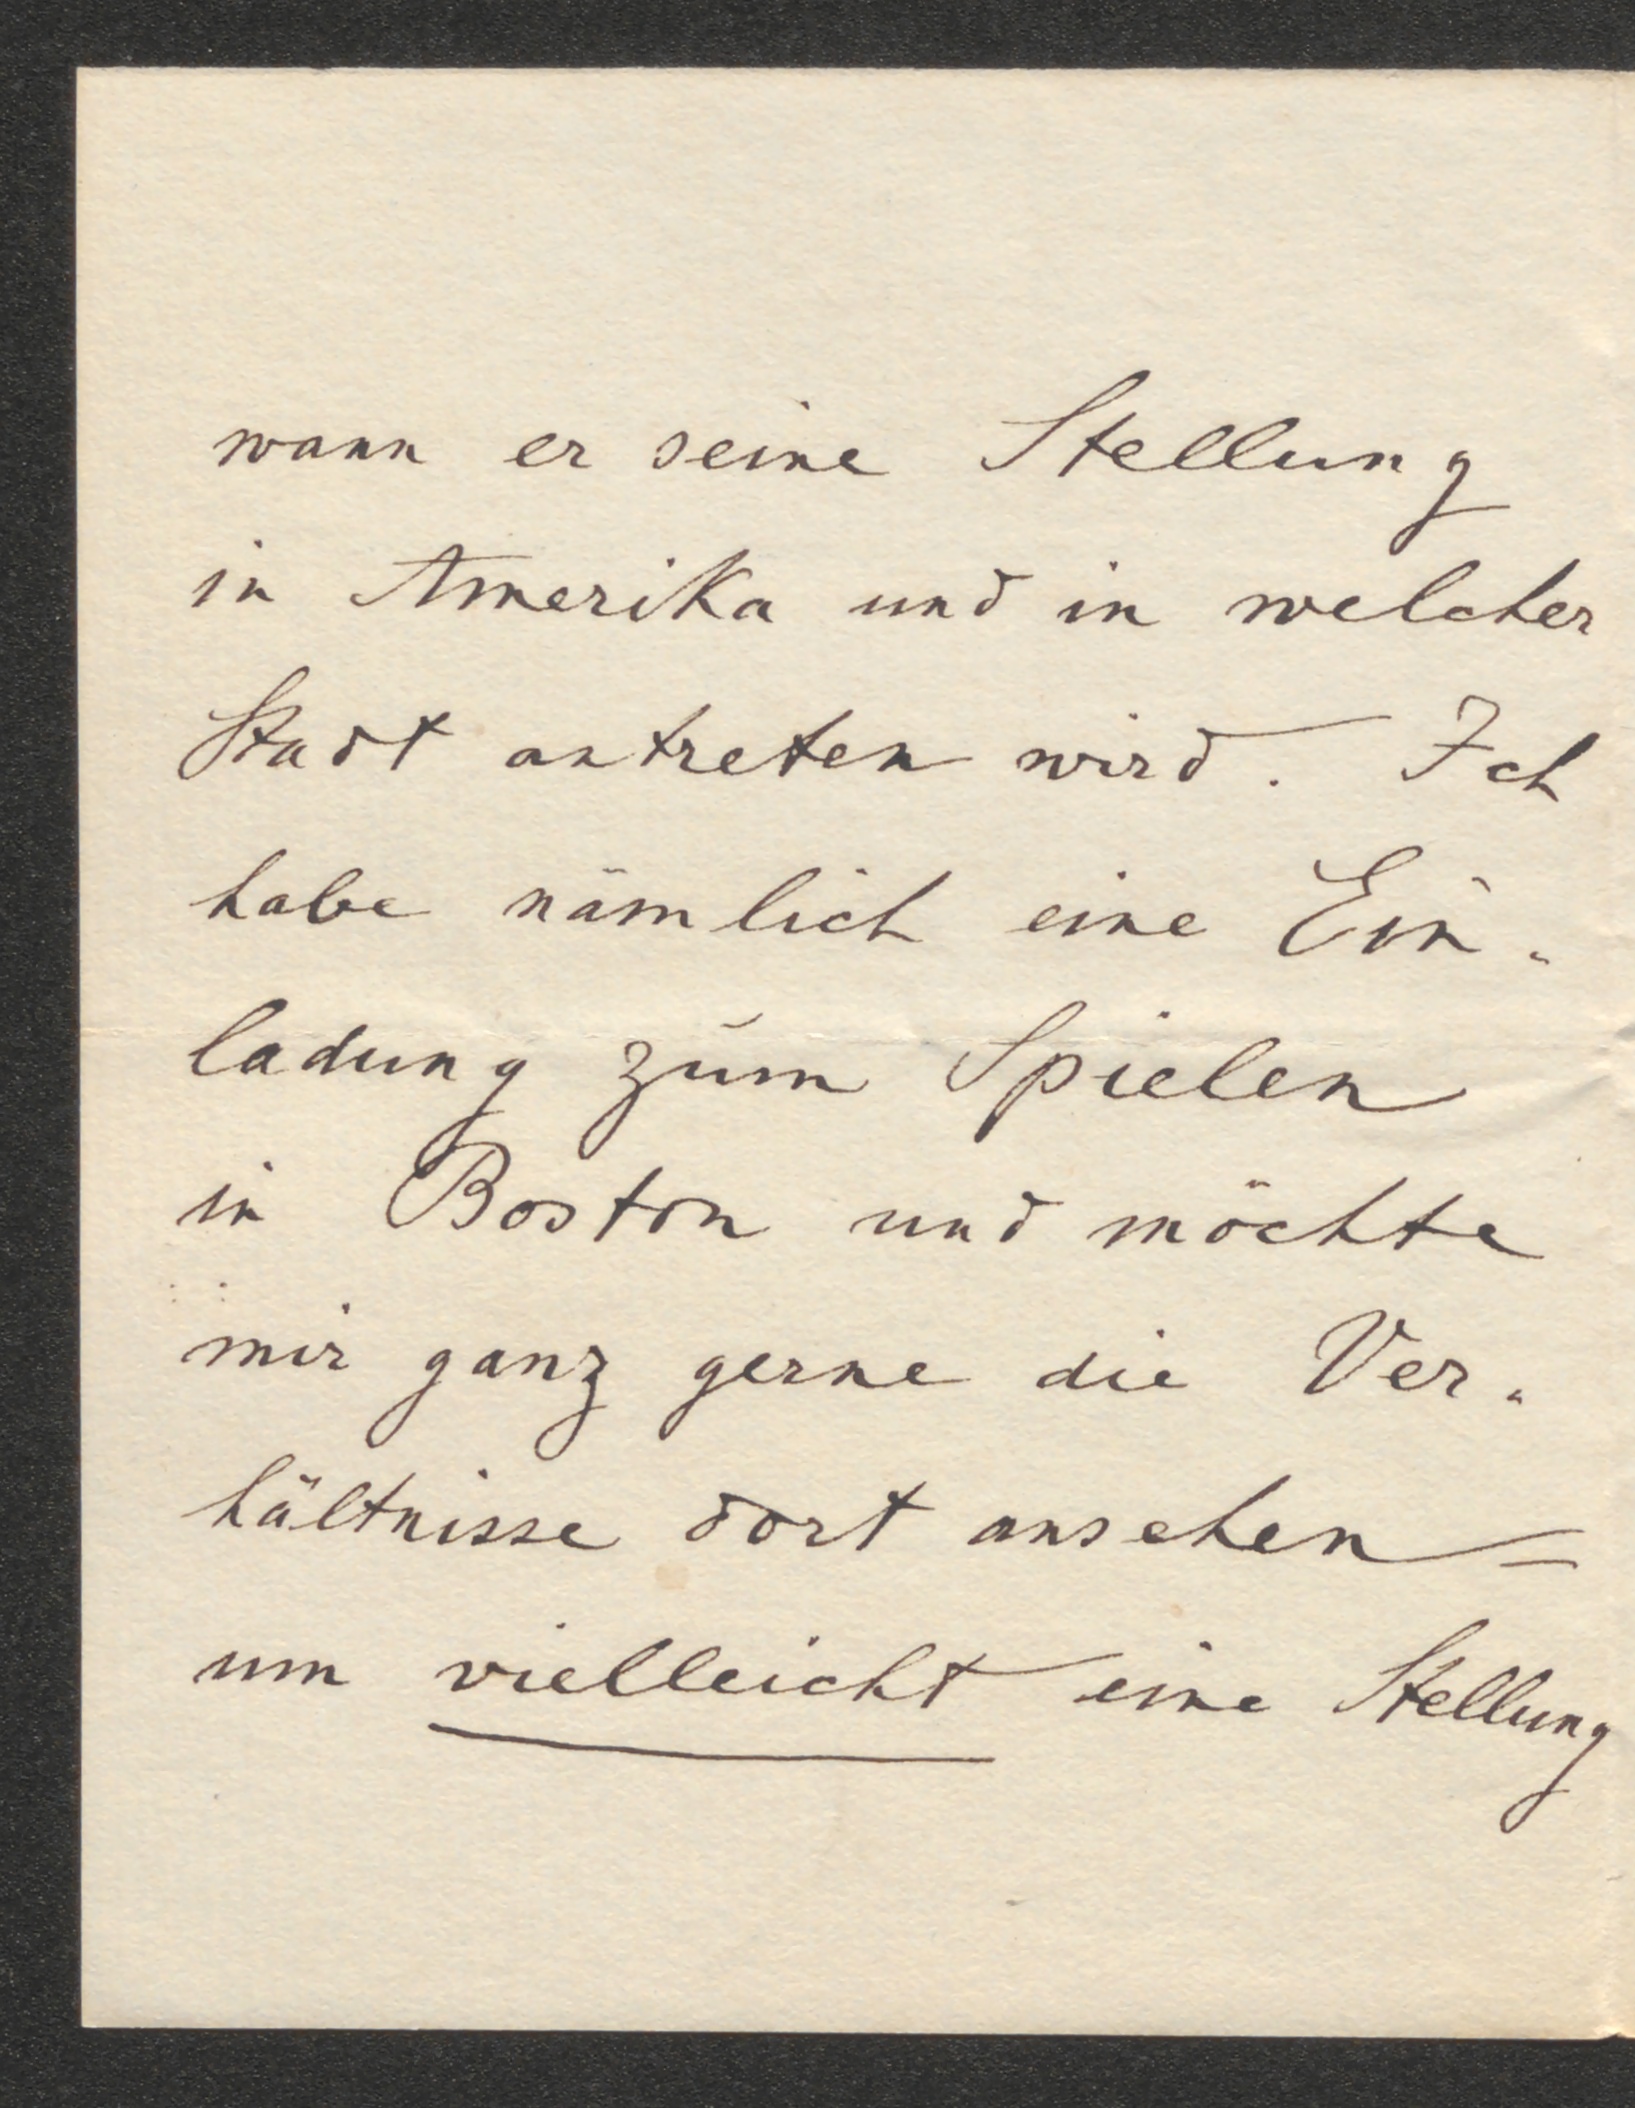 wann er seine Stellung
in Amerika und in welcher
Stadt antreten wird. Ich
habe nämlich eine Ein-
ladung zum Spielen
in Boston und möchte
mir ganz gerne die Ver-
hältnisse dort ansehen –
um vielleicht eine Stellung